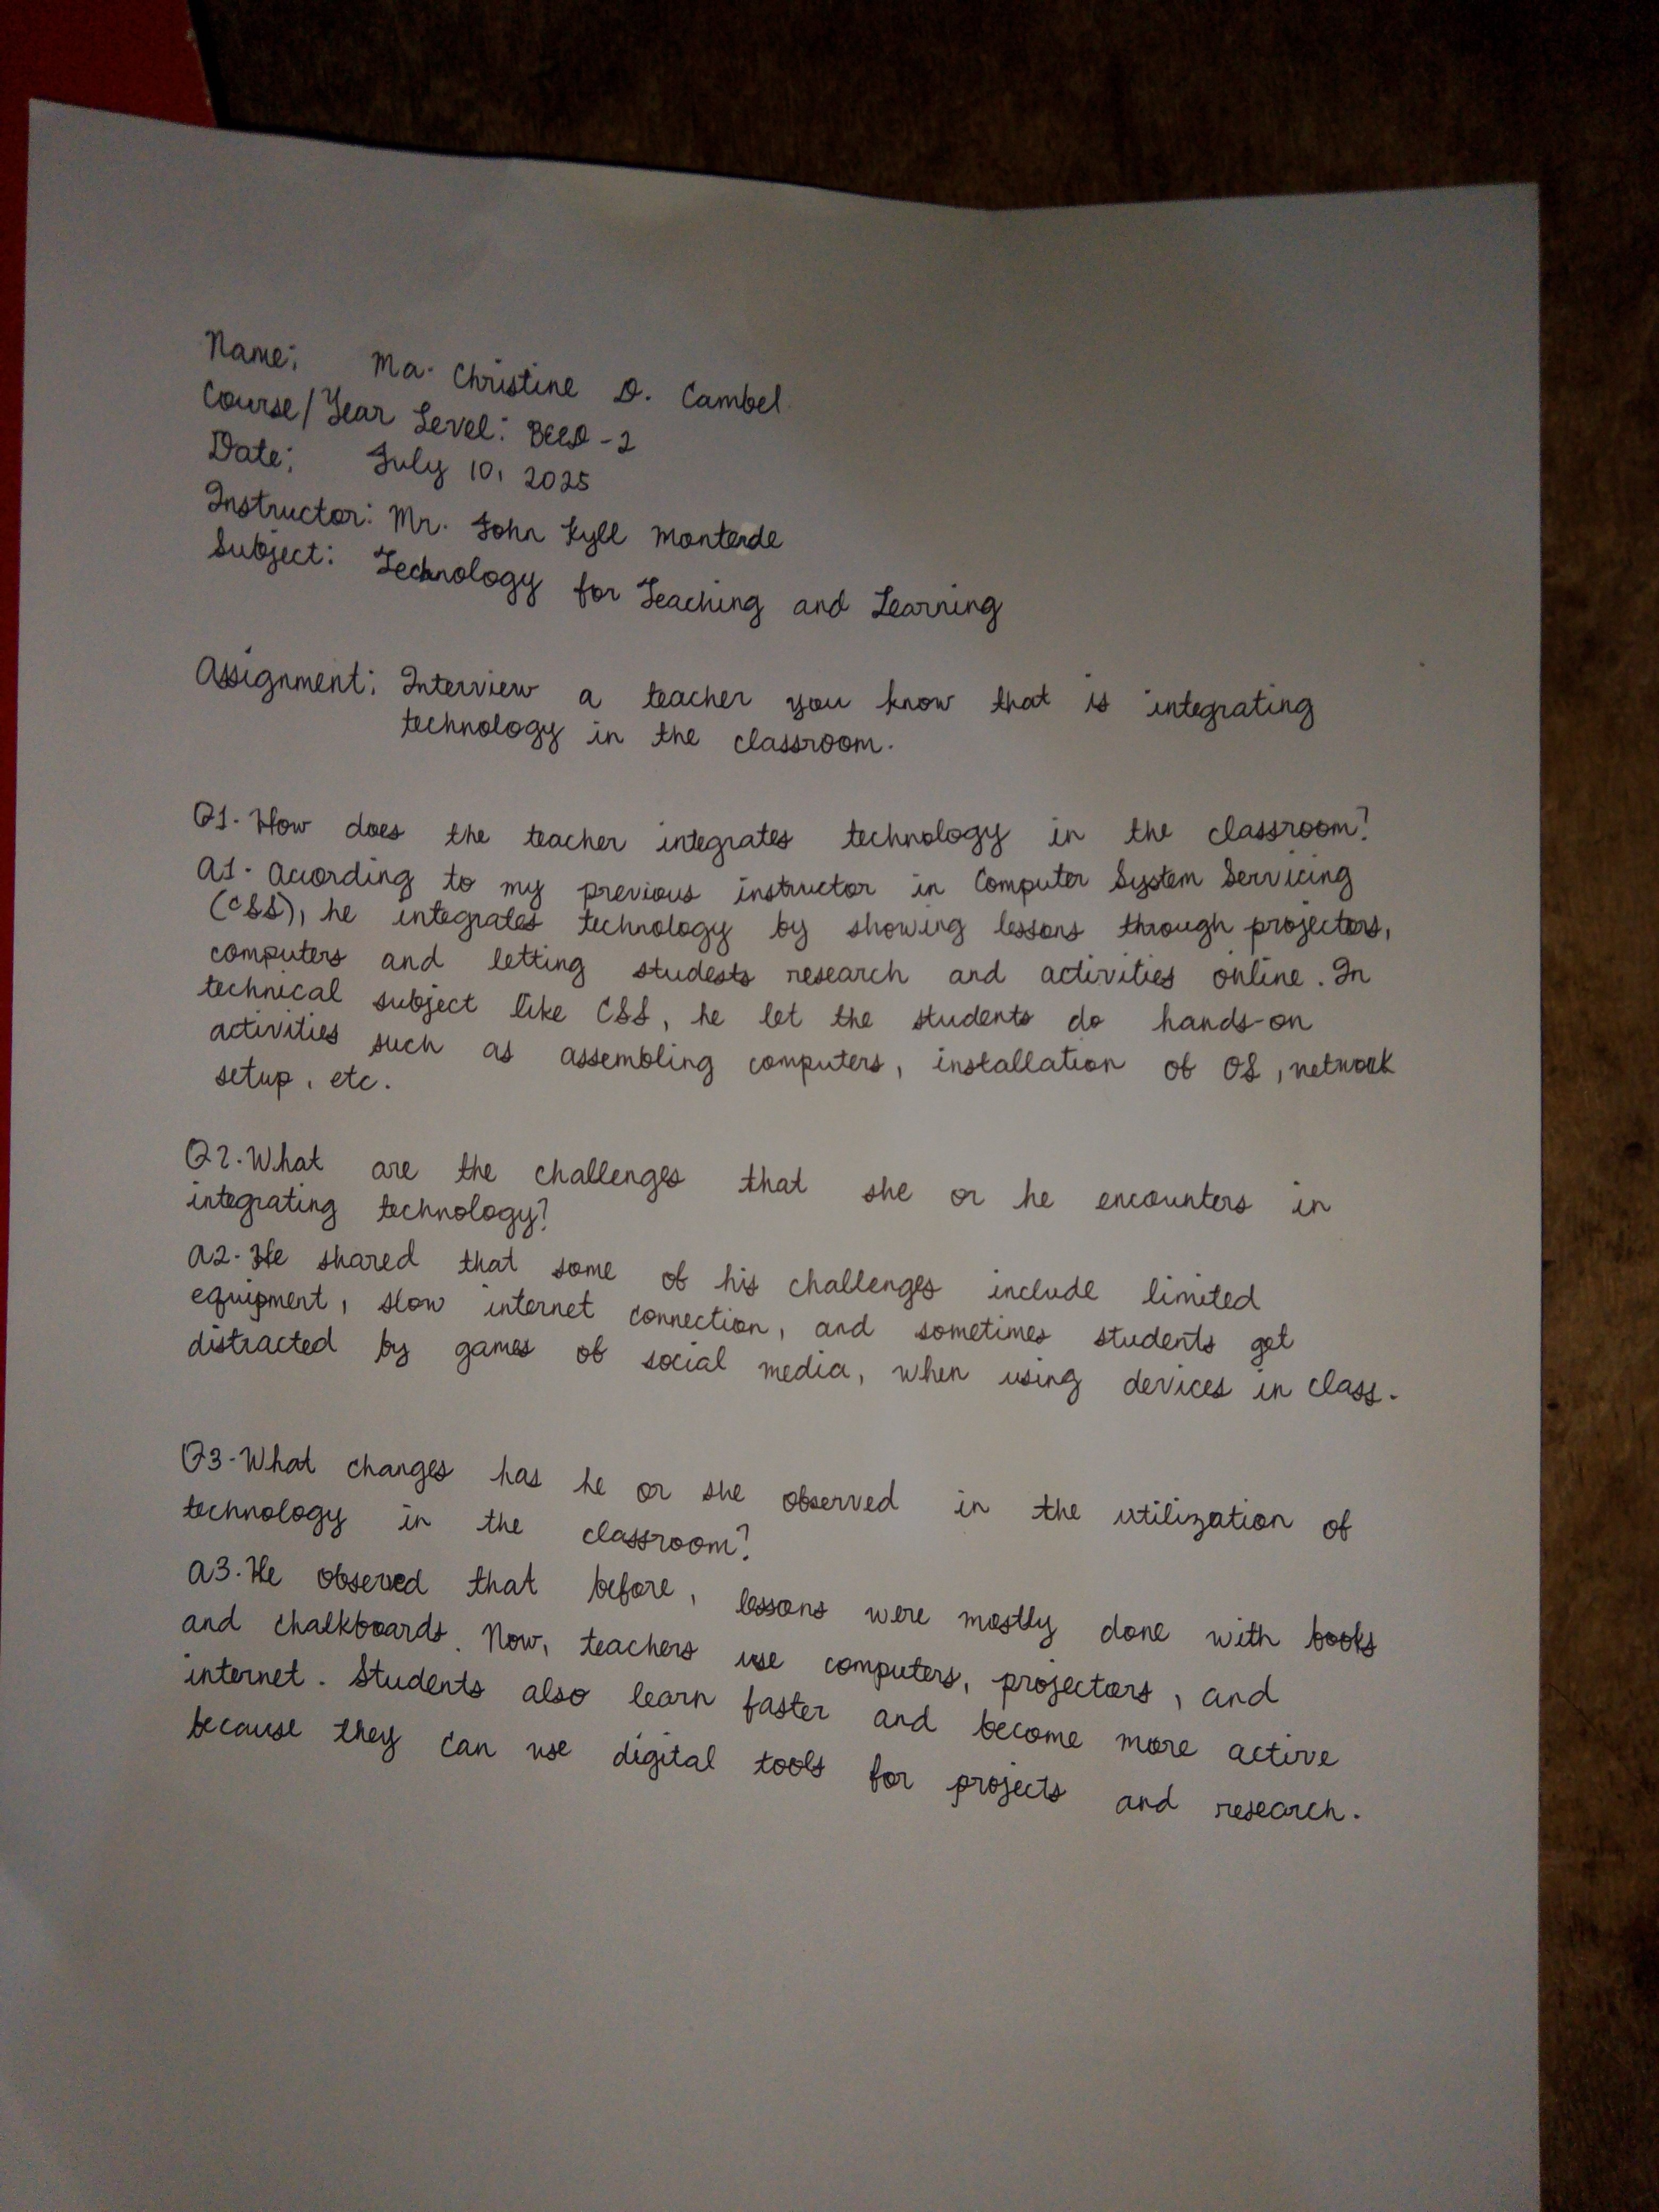 Name: Ma. Christine D. Cambel
Course/Year Level: BEED-2
Date: July 10, 2025
Instructor: Mr. John Kyll Monterde
Subject: Technology for Teaching and Learning
Assignment: Interview a teacher you know that is integrating
technology in the classroom.
Q1. How does the teacher integrates technology in the classroom?
A1. Acording to my previous instructor in Computer System Servicing
(CSS), he integrates technology by showing lessons through projectors,
computers and letting studests research and activities online. In
technical subject like CSS, he let the students do hands-on
activities such as assembling computers, installation of OS, network
setup, etc.
Q2. What are the challenges that she or he encounters in
integrating technology?
A2. He shared that some of his challenges include limited
equipment, slow internet connection, and sometimes students get
distracted by games of social media, when using devices in class.
Q3. What changes has he or she observed in the utilization of
technology in the classroom?
A3. He observed that before, lessons were mostly done with books
and chalkboards. Now, teachers use computers, projectors, and
internet. Students also learn faster and become more active
because they can use digital tools for projects and research.